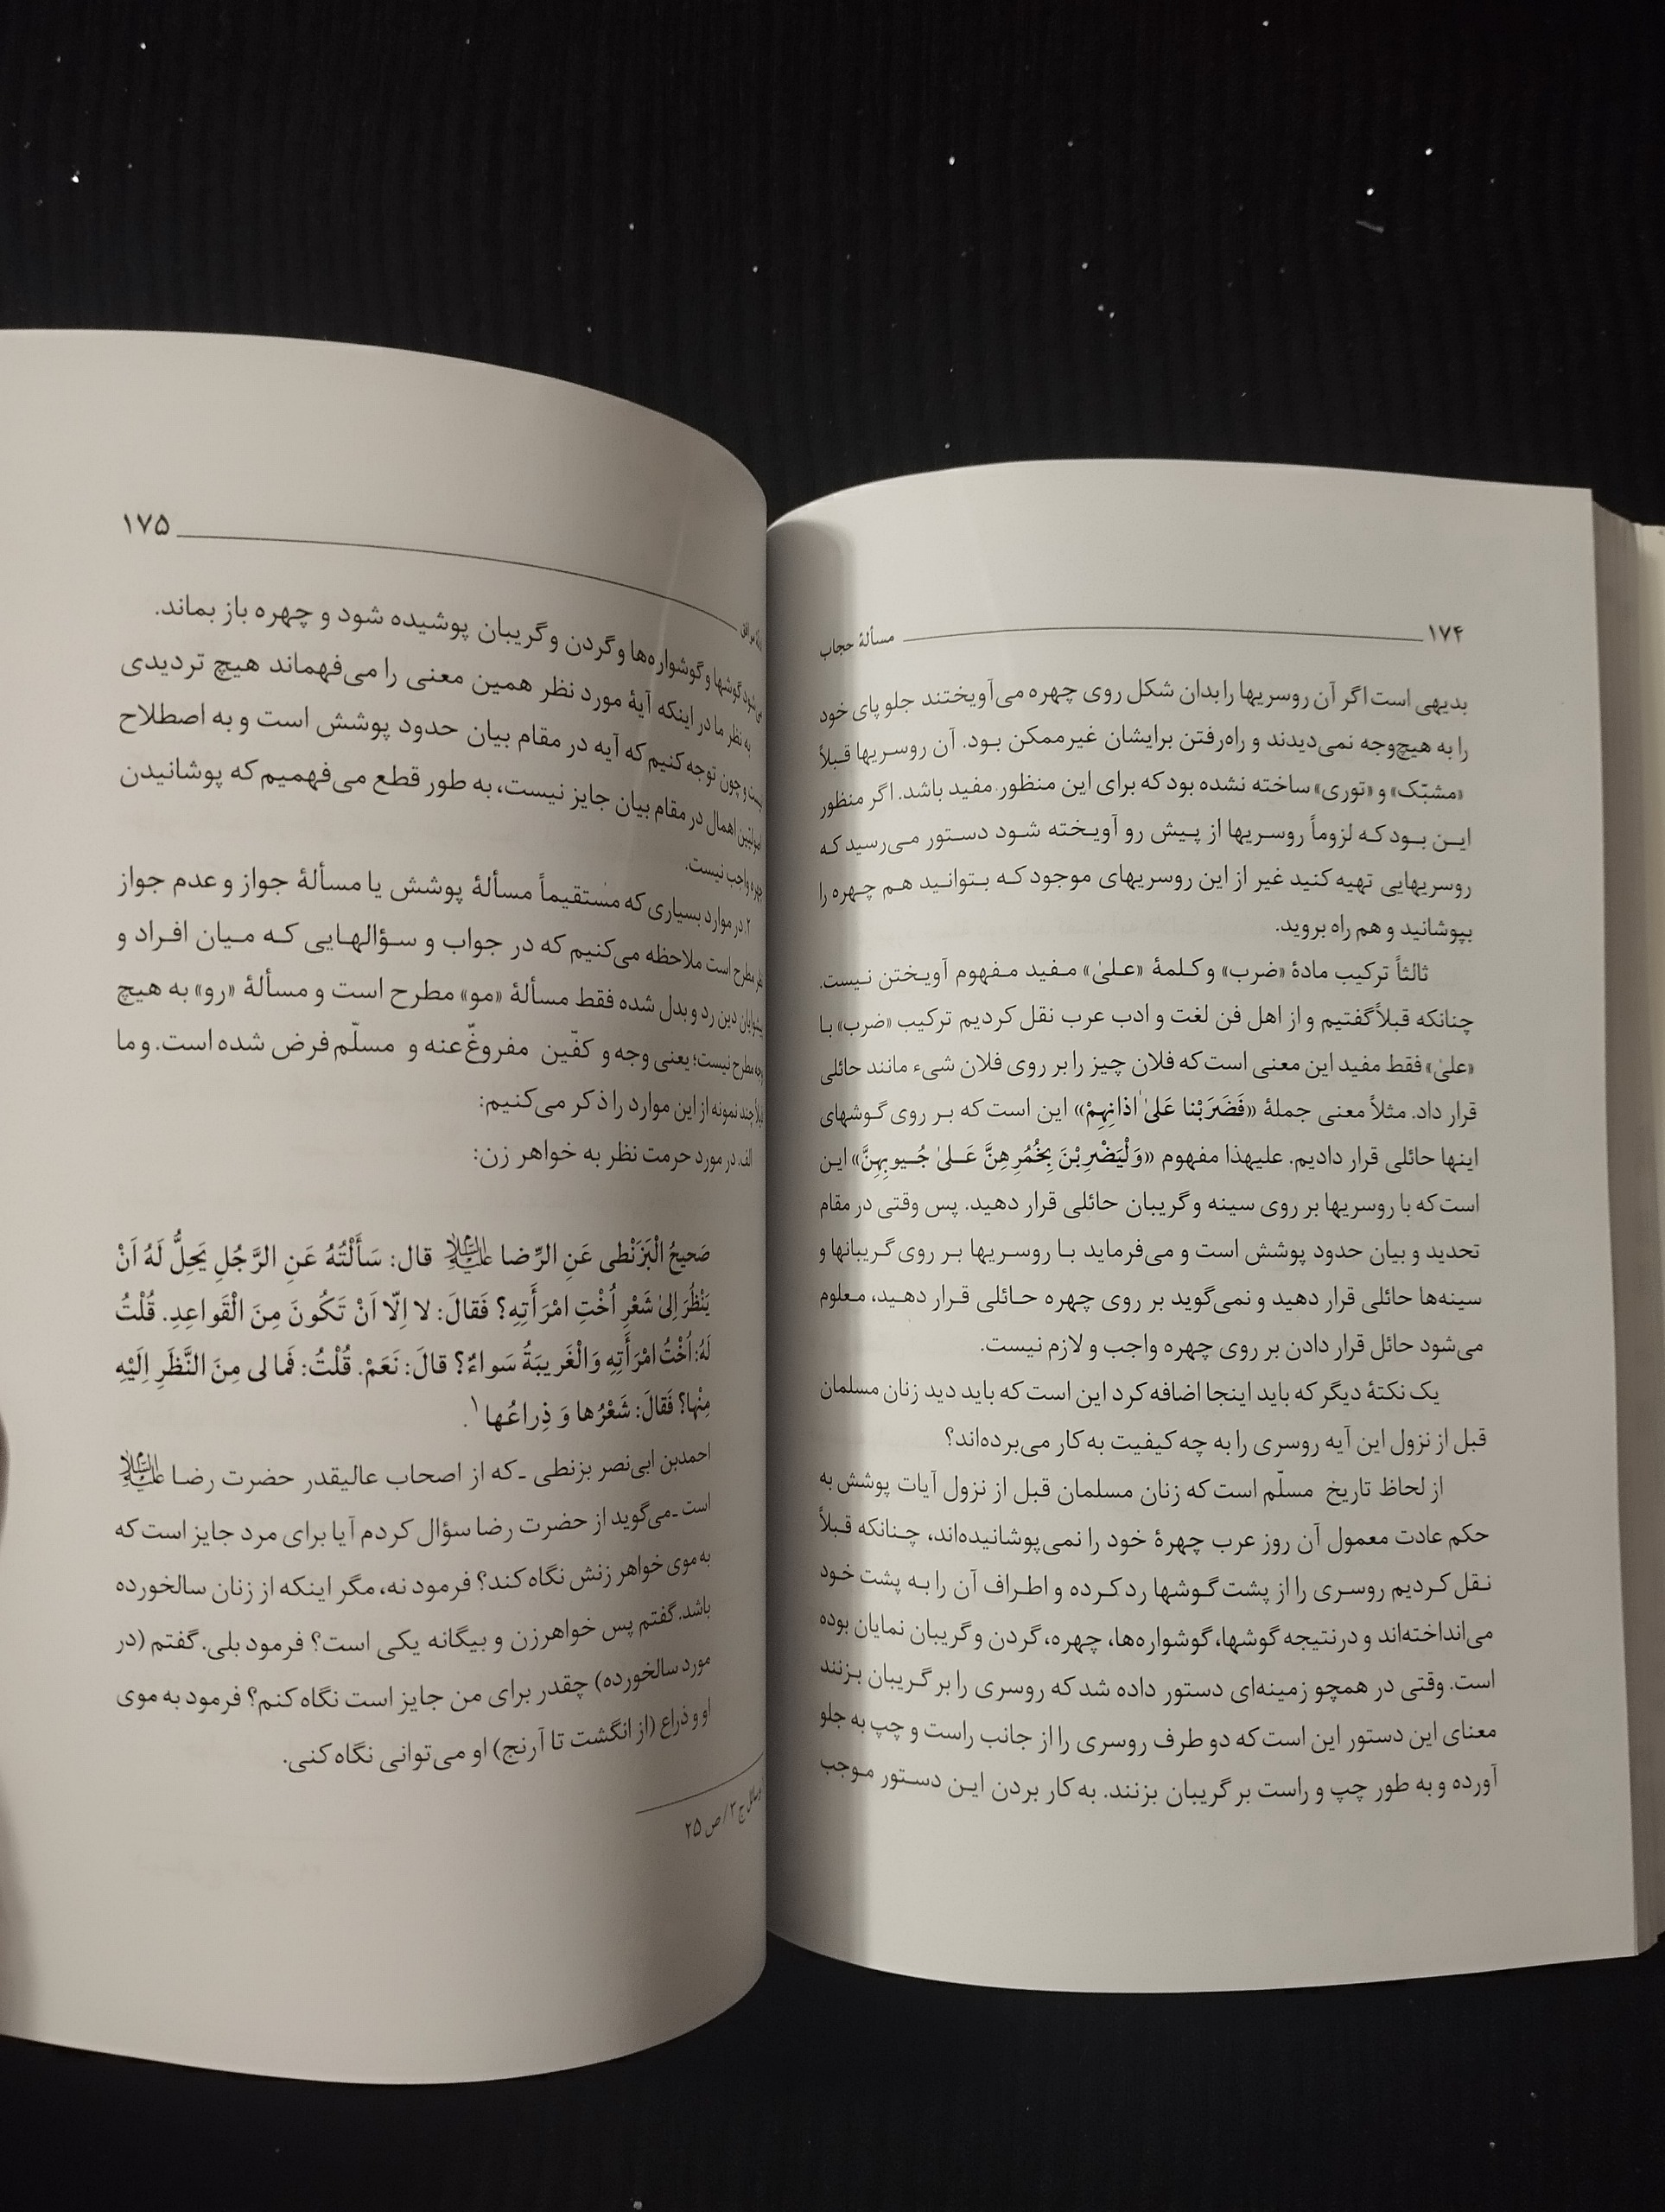 ۱۷۴ مسألهٔ حجاب
بدیهی است اگر آن روسریها را بدان شکل روی چهره می‌آویختند جلو پای خود
را به هیچ‌وجه نمی‌دیدند و راه‌رفتن برایشان غیرممکن بود. آن روسریها قبلاً
«مشبّک» و «توری» ساخته نشده بود که برای این منظور مفید باشد. اگر منظور
این بود که لزوماً روسریها از پیش رو آویخته شود دستور می‌رسید که
روسریهایی تهیه کنید غیر از این روسریهای موجود که بتوانید هم چهره را
بپوشانید و هم راه بروید.
ثالثاً ترکیب مادهٔ «ضرب» و کلمهٔ «علیٰ» مفید مفهوم آویختن نیست.
چنانکه قبلاً گفتیم و از اهل فن لغت و ادب عرب نقل کردیم ترکیب «ضرب» با
«علیٰ» فقط مفید این معنی است که فلان چیز را بر روی فلان شیء مانند حائلی
قرار داد. مثلاً معنی جملهٔ «فَضَرَبْنا عَلیٰ اٰذانِهِمْ» این است که بر روی گوشهای
اینها حائلی قرار دادیم. علیهذا مفهوم «وَلْیَضْرِبْنَ بِخُمُرِهِنَّ عَلیٰ جُیوبِهِنَّ» این
است که با روسریها بر روی سینه و گریبان حائلی قرار دهید. پس وقتی در مقام
تحدید و بیان حدود پوشش است و می‌فرماید با روسریها بر روی گریبانها و
سینه‌ها حائلی قرار دهید و نمی‌گوید بر روی چهره حائلی قرار دهید، معلوم
می‌شود حائل قرار دادن بر روی چهره واجب و لازم نیست.
یک نکتهٔ دیگر که باید اینجا اضافه کرد این است که باید دید زنان مسلمان
قبل از نزول این آیه روسری را به چه کیفیت به کار می‌برده‌اند؟
از لحاظ تاریخ مسلّم است که زنان مسلمان قبل از نزول آیات پوشش به
حکم عادت معمول آن روز عرب چهرهٔ خود را نمی‌پوشانیده‌اند، چنانکه قبلاً
نقل کردیم روسری را از پشت گوشها رد کرده و اطراف آن را به پشت خود
می‌انداخته‌اند و درنتیجه گوشها، گوشواره‌ها، چهره، گردن و گریبان نمایان بوده
است. وقتی در همچو زمینه‌ای دستور داده شد که روسری را بر گریبان بزنند
معنای این دستور این است که دو طرف روسری را از جانب راست و چپ به جلو
آورده و به طور چپ و راست بر گریبان بزنند. به کار بردن این دستور موجب
۱۷۵
می‌شود گوشها و گوشواره‌ها و گردن و گریبان پوشیده شود و چهره باز بماند.
به نظر ما در اینکه آیهٔ مورد نظر همین معنی را می‌فهماند هیچ تردیدی
نیست و چون توجه کنیم که آیه در مقام بیان حدود پوشش است و به اصطلاح
اصولیّین اهمال در مقام بیان جایز نیست، به طور قطع می‌فهمیم که پوشانیدن
چهره واجب نیست.
۲. در موارد بسیاری که مستقیماً مسألهٔ پوشش یا مسألهٔ جواز و عدم جواز
نظر مطرح است ملاحظه می‌کنیم که در جواب و سؤالهایی که میان افراد و
پیشوایان دین رد و بدل شده فقط مسألهٔ «مو» مطرح است و مسألهٔ «رو» به هیچ
وجه مطرح نیست؛ یعنی وجه و کفّین مفروغٌ‌عنه و مسلّم فرض شده است. و ما
چند نمونه از این موارد را ذکر می‌کنیم:
الف. در مورد حرمت نظر به خواهر زن:
صَحیحُ الْبَزَنْطی عَنِ الرِّضا علیه‌السلام قال: سَأَلْتُهُ عَنِ الرَّجُلِ یَحِلُّ لَهُ اَنْ
یَنْظُرَ اِلیٰ شَعْرِ اُخْتِ امْرَأَتِهِ؟ فَقالَ: لا اِلّا اَنْ تَکُونَ مِنَ الْقَواعِدِ. قُلْتُ
لَهُ: اُخْتُ امْرَأَتِهِ وَالْغَریبَةُ سَواءٌ؟ قالَ: نَعَمْ. قُلْتُ: فَما لی مِنَ النَّظَرِ اِلَیْهِ
مِنْها؟ فَقالَ: شَعْرُها وَ ذِراعُها۱.
احمدبن ابی‌نصر بزنطی ـ که از اصحاب عالیقدر حضرت رضا علیه‌السلام
است ـ می‌گوید از حضرت رضا سؤال کردم آیا برای مرد جایز است که
به موی خواهر زنش نگاه کند؟ فرمود نه، مگر اینکه از زنان سالخورده
باشد. گفتم پس خواهرزن و بیگانه یکی است؟ فرمود بلی. گفتم (در
مورد سالخورده) چقدر برای من جایز است نگاه کنم؟ فرمود به موی
او و ذراع (از انگشت تا آرنج) او می‌توانی نگاه کنی.
وسائل ج ۳/ ص ۲۵